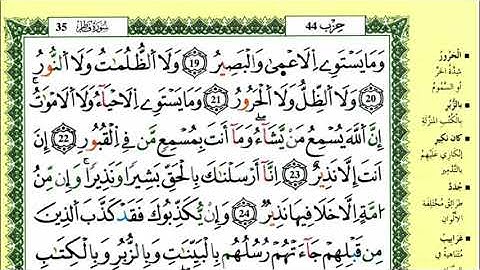 35 سُورَةُ فَاطِر
حِزْب 44
وَمَا يَسْتَوِے اِ۬لَاعْمۭيٰ وَالْبَصِيرُ 19 وَلَا اَ۬لظُّلُمَٰتُ وَلَا اَ۬لنُّورُ
20 وَلَا اَ۬لظِّلُّ وَلَا اَ۬لْحَرُورُ 21 وَمَا يَسْتَوِے اِ۬لَاحْيَآءُ وَلَا اَ۬لَامْوَٰتُ
إِنَّ اَ۬للَّهَ يُسْمِعُ مَنْ يَّشَآءُ وَمَآ أَنتَ بِمُسْمِعٍ مَّن فِے اِ۬لْقُبُورِ 22 إِنَ
اَنتَ إِلَّا نَذِيرٌ 23 اِنَّآ أَرْسَلْنَٰكَ بِالْحَقِّ بَشِيراً وَنَذِيراً وَإِن مِّنُ
ا۟مَّةٍ اِلَّا خَلَا فِيهَا نَذِيرٌ 24 وَإِنْ يُّكَذِّبُوكَ فَقَدْ كَذَّبَ اَ۬لذِينَ
مِن قَبْلِهِمْ جَآءَتْهُمْ رُسُلُهُم بِالْبَيِّنَٰتِ وَبِالزُّبُرِ وَبِالْكِتَٰبِ
الْحَرُورُ
شِدَّةُ الحَرِّ
أو السَّمُومُ
بِالزُّبُرِ
بِالكُتُبِ المُنَزَّلَةِ
كان نَكِيرِ
إنكاري عَلَيْهِمْ
بِالتَّدْمِيرِ
جُدَدٌ
طَرَائِقُ مُخْتَلِفَةُ
الأَلْوَانِ
غَرَابِيبُ
مُتَنَاهِيَةٌ في